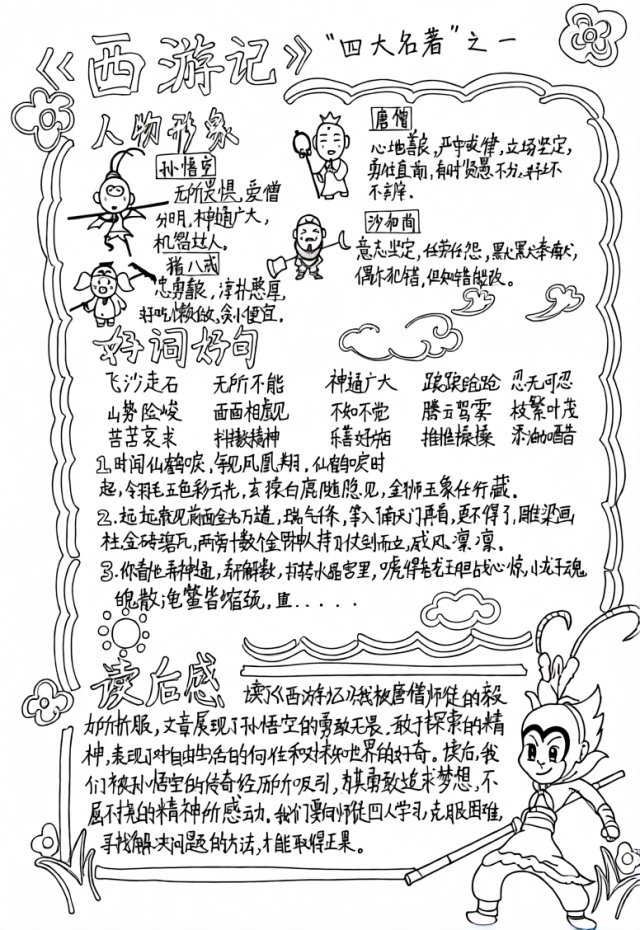 《西游记》“四大名著”之一
人物形象
孙悟空
无所畏惧，爱憎
分明，神通广大，
机智过人。
唐僧
心地善良，严守戒律，立场坚定，
勇往直前，有时贤愚不分，
猪八戒
忠勇善良，淳朴憨厚，
好吃懒做，贪小便宜。
沙和尚
意志坚定，任劳任怨，默默奉献，
偶尔犯错，但知错能改。
好词好句
飞沙走石 无所不能 神通广大 踉踉跄跄 忍无可忍
山势险峻 面面相觑 不知不觉 腾云驾雾 枝繁叶茂
苦苦哀求 抖擞精神 乐善好施 推推搡搡 添油加醋
1.时闻仙鹤唳，每见凤凰翔，仙鹤唳时
起，令羽毛五色彩云光，玄猿白鹿随隐见，金狮玉象任行藏。
2.远远就见前面金光万道，瑞气千条，等入了南天门再看，更不得了，雕梁画
柱，金砖碧瓦，两旁十数个金甲神人持刀仗剑而立，威风凛凛。
3.你看他弄神通，打转水晶宫里，唬得老龙王胆战心惊，小龙子魂
魄散，龟鳖皆缩颈，
读后感
读了《西游记》我被唐僧师徒的毅
力所折服，文章展现了孙悟空的勇敢无畏、敢于探索的精
神，表现了对自由生活的向往和对未知世界的好奇。读后，我
们被孙悟空的传奇经历所吸引，为其勇敢追求梦想，不
屈不挠的精神所感动。我们要向师徒四人学习，克服困难，
寻找解决问题的方法，才能取得正果。